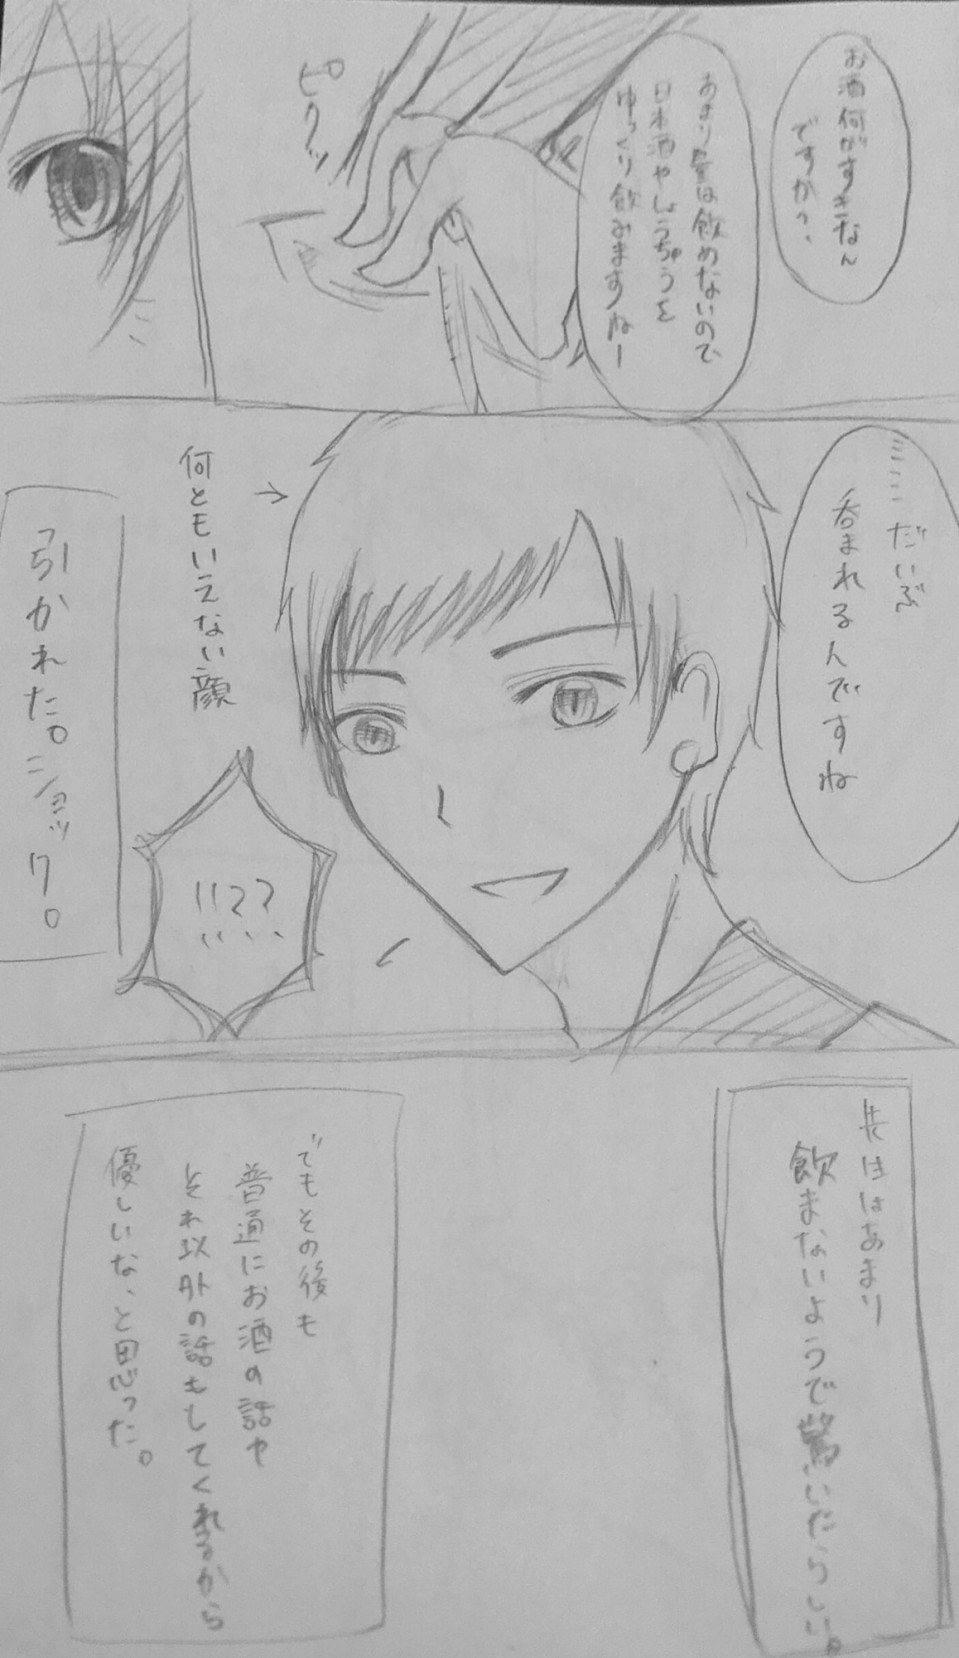 お酒何がすきなん
ですか?
あまり量は飲めないので
日本酒やしょうちゅうを
ゆっくり飲みますねー
ピクッ
ミミミだいぶ
呑まれるんですね
何ともいえない顔
→
!!??
引かれた。ショック。
夫はあまり
飲まないようで驚いたらしい。
でもその後も
普通にお酒の話や
それ以外の話もしてくれるから
優しいな、と思った。